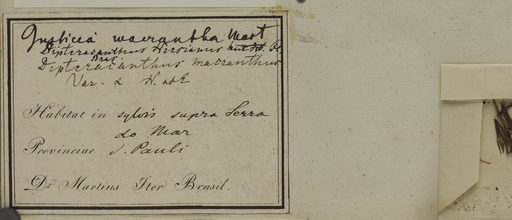 Justicia macrantha Mart
Dipteracanthus Neesianus Mart. Fl.
Bras
Dipteracanthus macranthus
Var. α N. ab E
Habitat in sylvis supra Serra
do Mar
Provinciae S. Pauli
Dr Martius Iter Brasil.